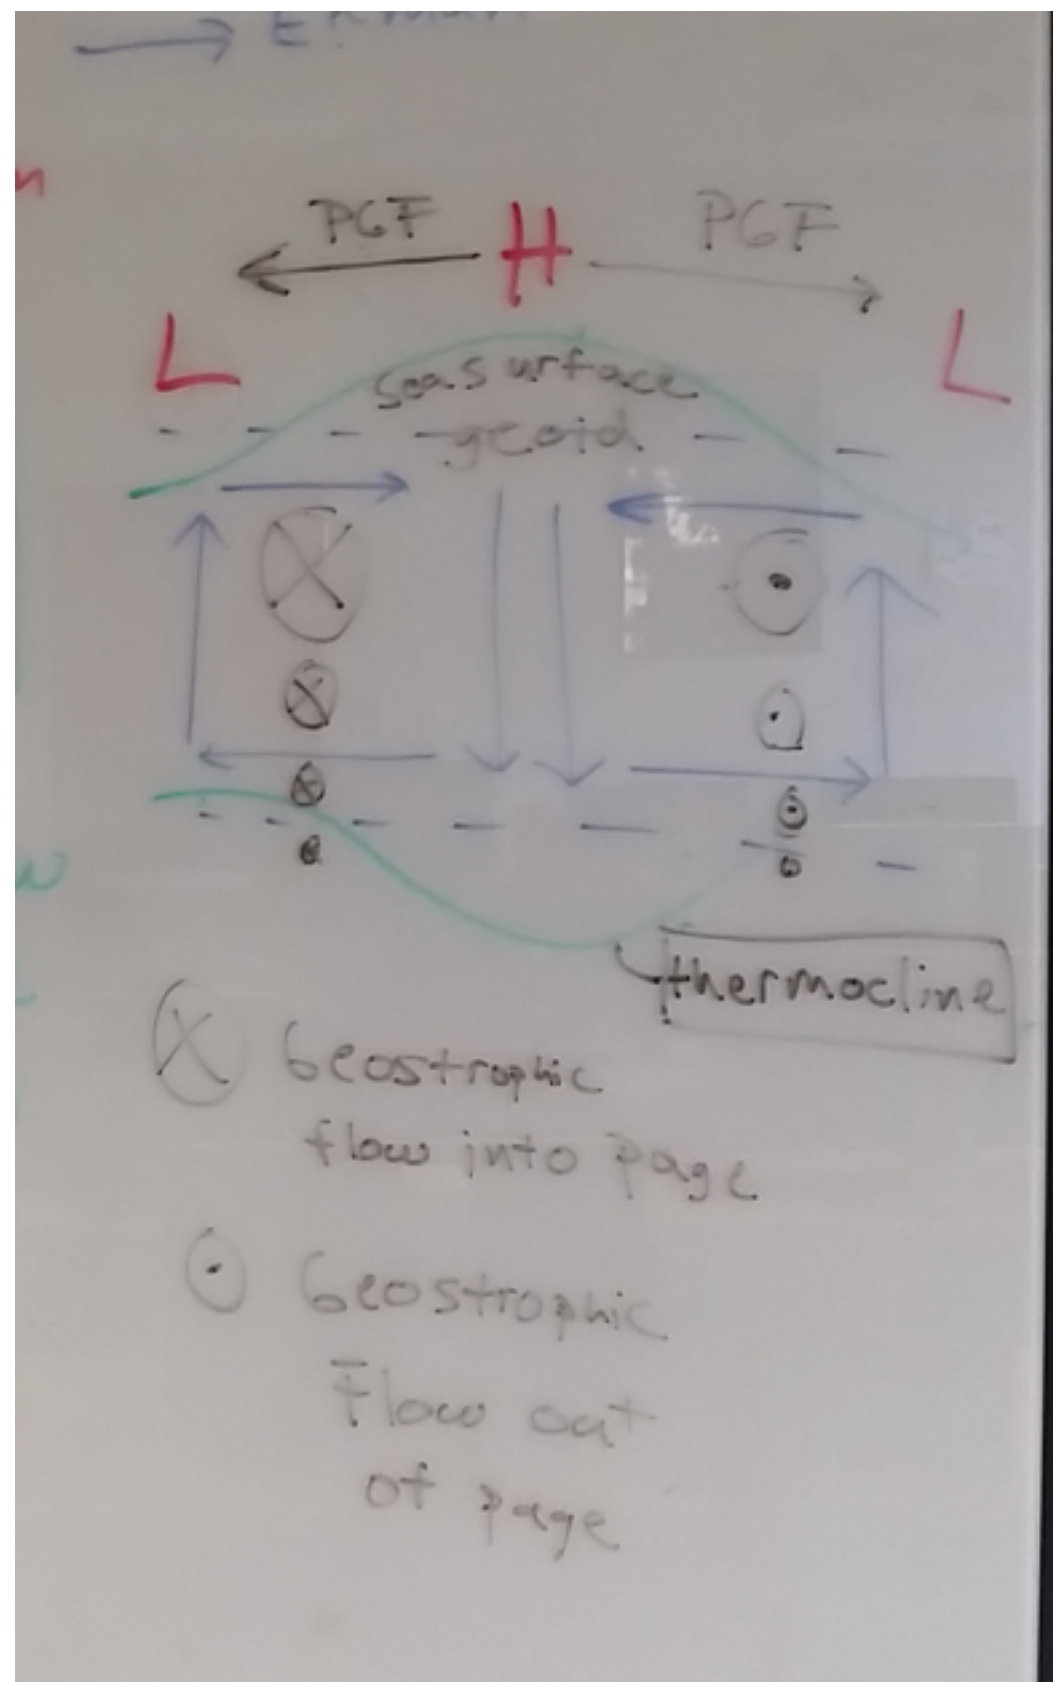 PGF H PGF
L L
sea surface
geoid
thermocline
Geostrophic
flow into page
Geostrophic
Flow out
of page